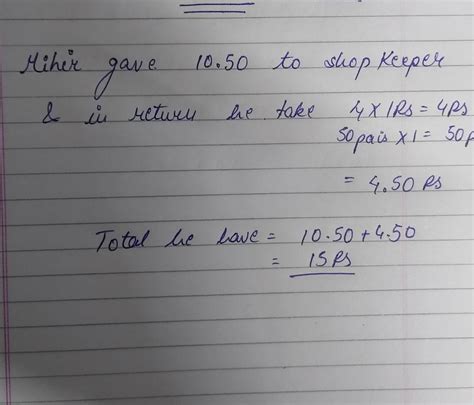 Mihir gave 10.50 to shop keeper
& in return he take 4 X 1Rs = 4Rs
50pais X 1 = 50p
= 4.50 Rs
Total he have = 10.50 + 4.50
= 15 Rs